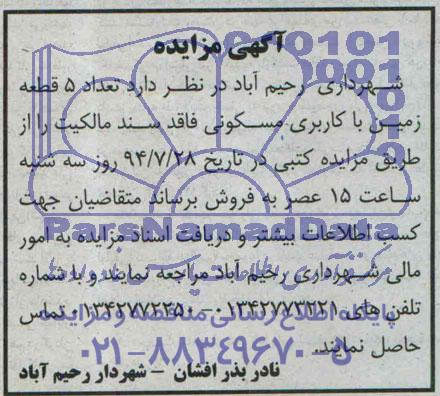 آگهی مزایده
شهرداری رحیم آباد در نظر دارد تعداد ۵ قطعه
زمین با کاربری مسکونی فاقد سند مالکیت را از
طریق مزایده کتبی در تاریخ ۹۴/۷/۲۸ روز سه شنبه
ساعت ۱۵ عصر به فروش برساند متقاضیان جهت
کسب اطلاعات بیشتر و دریافت اسناد مزایده به امور
مالی شهرداری رحیم آباد مراجعه نمایند و با شماره
تلفن های ۰۱۳۴۲۷۷۳۲۲۱ – ۰۱۳۴۲۷۷۲۲۵۰ تماس
حاصل نمایند.
نادر بذر افشان – شهردار رحیم آباد
ParsNamadData
پایگاه اطلاع رسانی مناقصه و مزایده
۰۲۱-۸۸۳۴۹۶۷۰